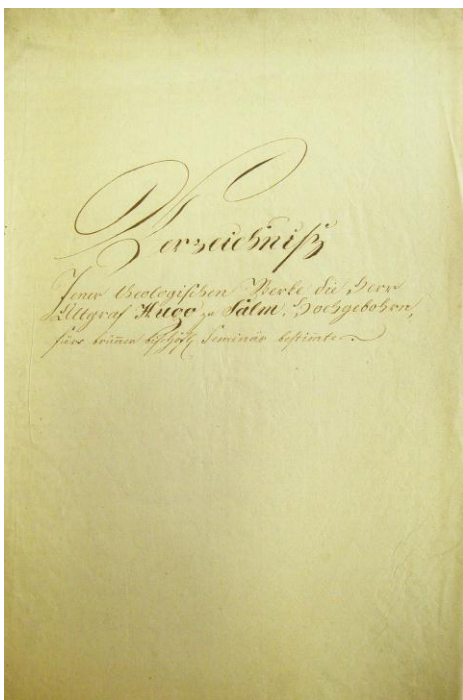 Verzeichniß
Jener theologischen Werke die Herr
Altgraf Hugo zu Salm, Hochgebohrn,
fürs brünner bischöfl. Seminär bestimte